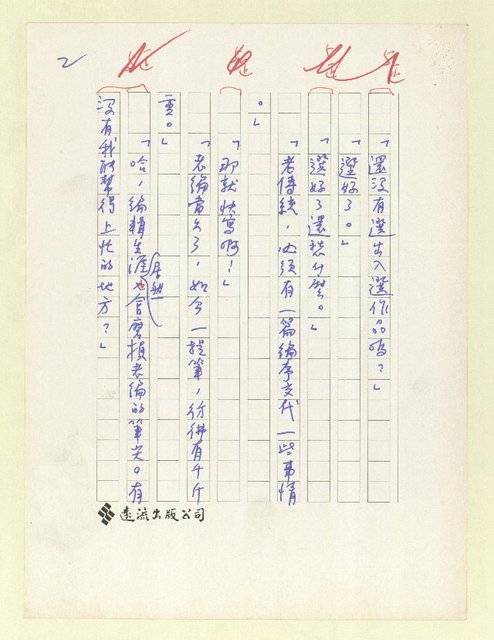 2
「還沒有選出入選作品嗎？」
「選好了。」
「選好了還愁什麼。」
「老傳統，必須有一篇編序交代一些事情
。」
「那就快寫啊！」
「老編當久了，如今一提筆，彷彿有千斤
重。」
「哈，編輯生涯居然會磨損老編的筆尖。有
沒有我能幫得上忙的地方？」
遠流出版公司